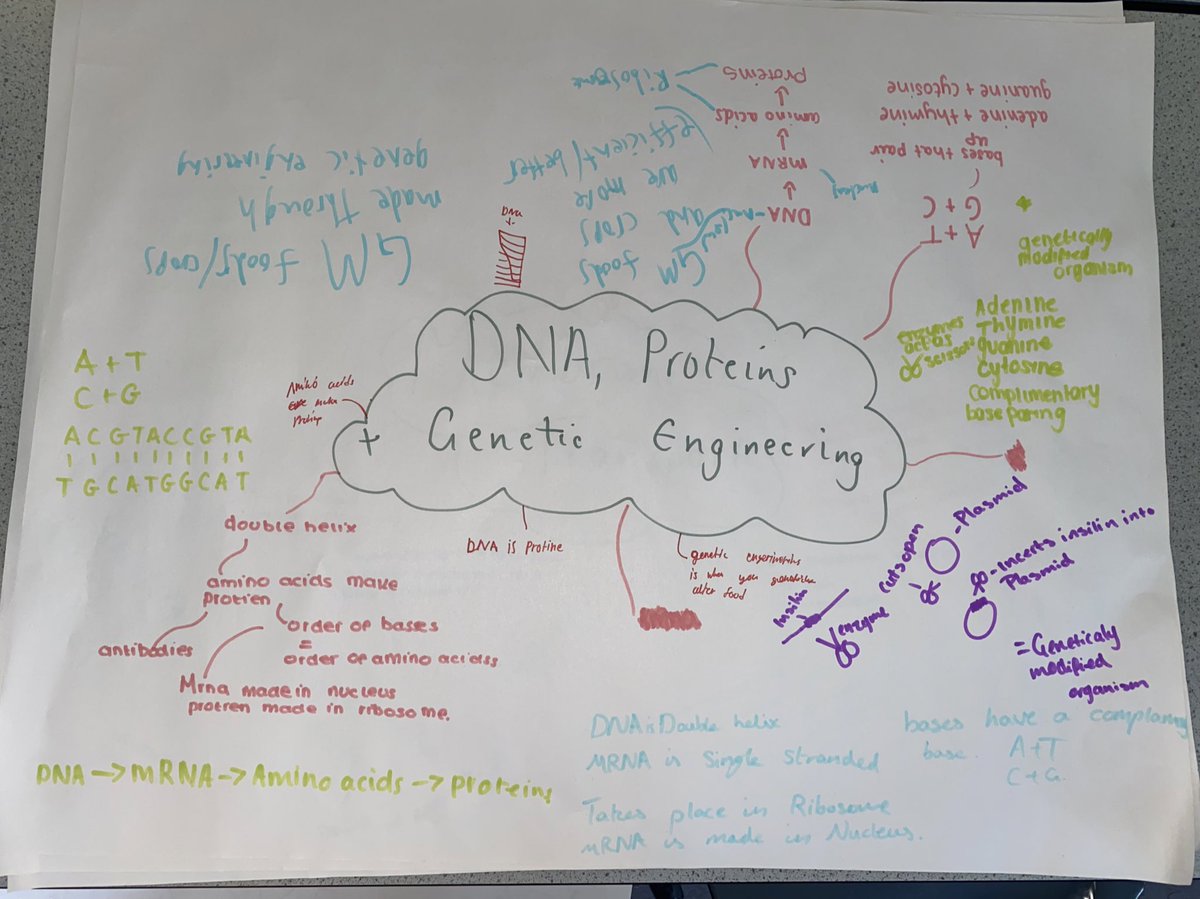 DNA, Proteins
+ Genetic Engineering
GM foods/crops
made through
genetic enginering
DNA
+
GM foods
and crops
are more
efficient/better
DNA
mRNA
amino acids
proteins
Ribosome
A+T
G+C
bases that pair
up
adenine + thymine
guanine + cytosine
genetically
modified
organism
enzymes
act as
scissors
Adenine
Thymine
guanine
cytosine
complimentary
base paring
A+T
C+G
ACGTACCGTA
TGCATGGCAT
Amino acids
make
double helix
amino acids make
protien
antibodies
order of bases
=
order of amino acidss
Mrna made in nucleus
protien made in ribosome.
DNA is Protine
genetic
is when you
alter food
insilin
enzyme
cuts open
-Plasmid
-Incerts insilin into
Plasmid
=Geneticaly
modified
organism
DNA→mRNA→Amino acids→proteins
DNA is Double helix
MRNA is Single stranded
Takes place in Ribosome
mRNA is made in Nucleus.
bases have a
base. A+T
C+G.